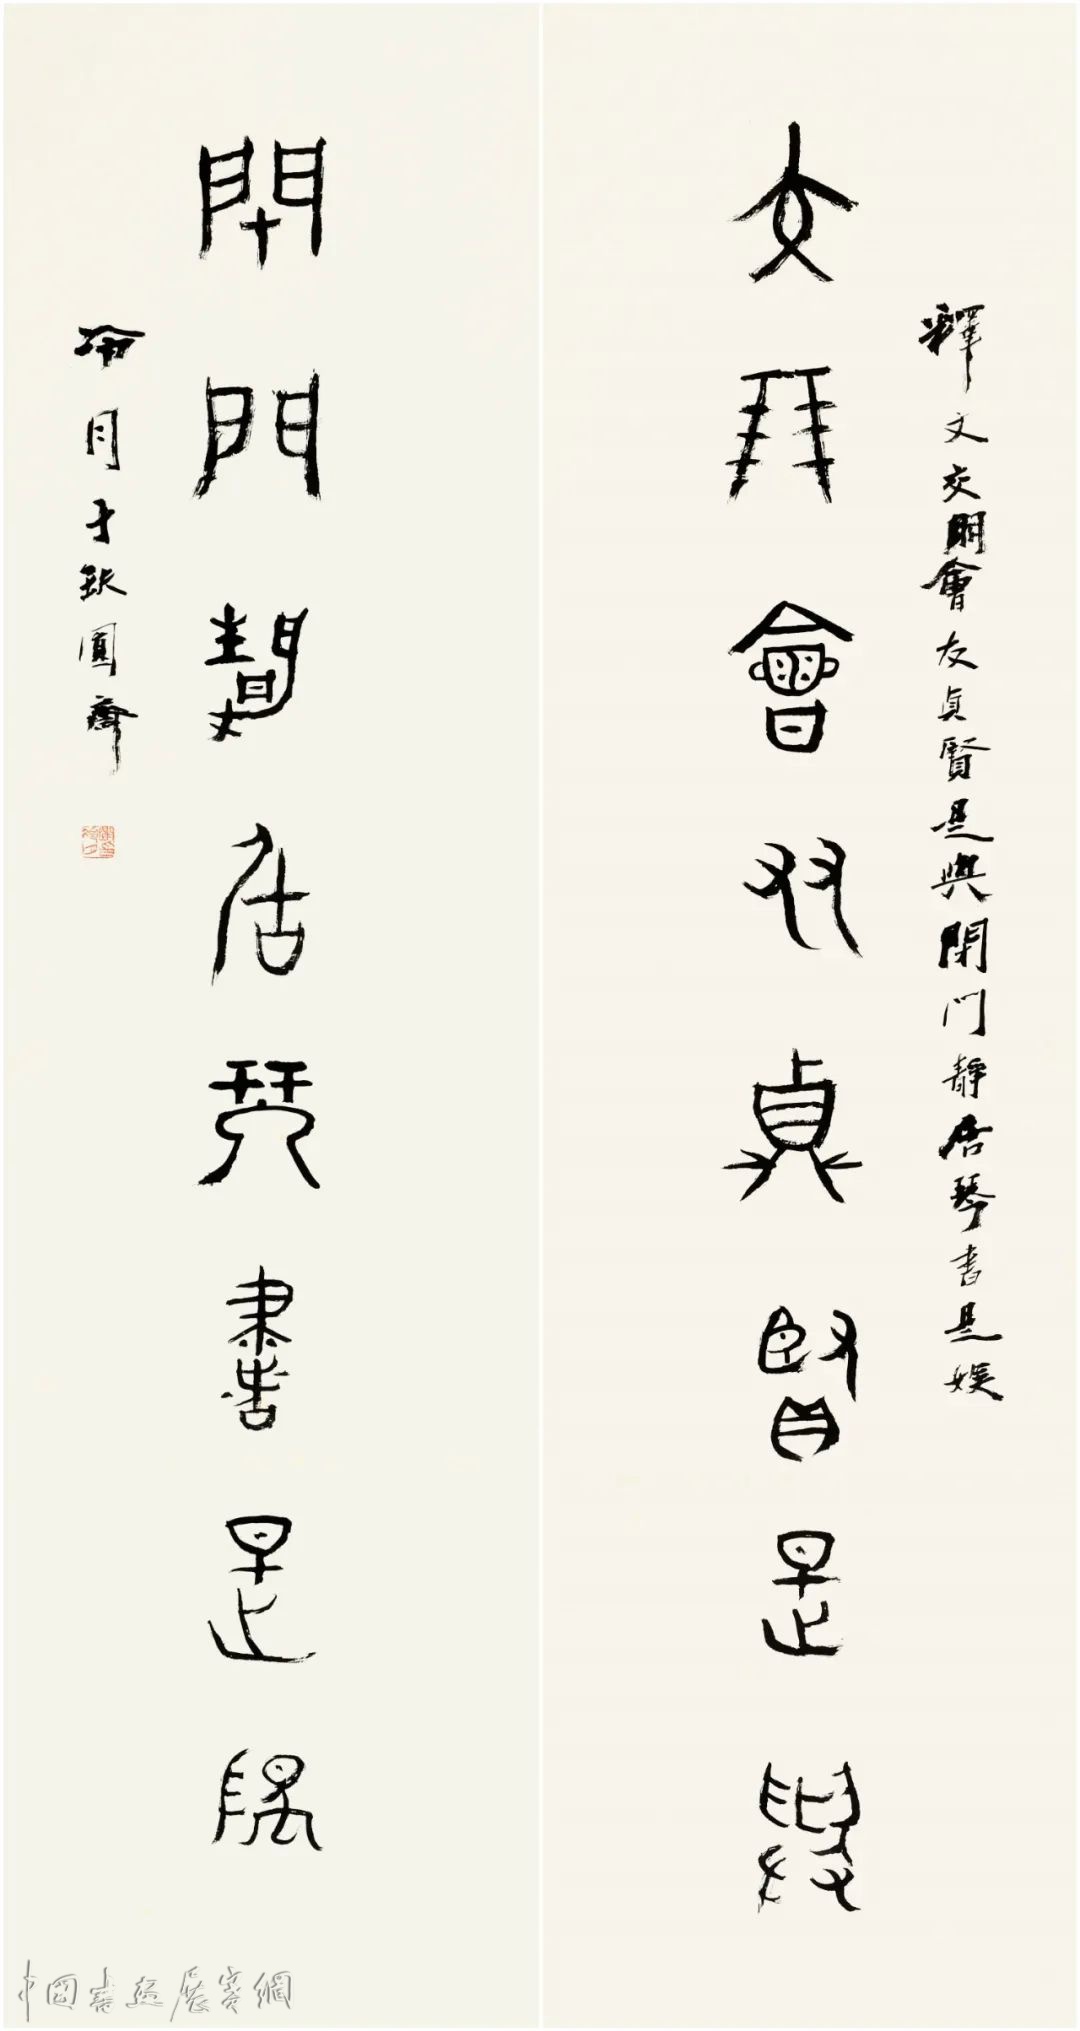 釋文交朋會友貞賢是與閉門靜居琴書是娛
交朋會友貞賢是與
閉門靜居琴書是娛
冷月于圓齋
中国書画展賽網